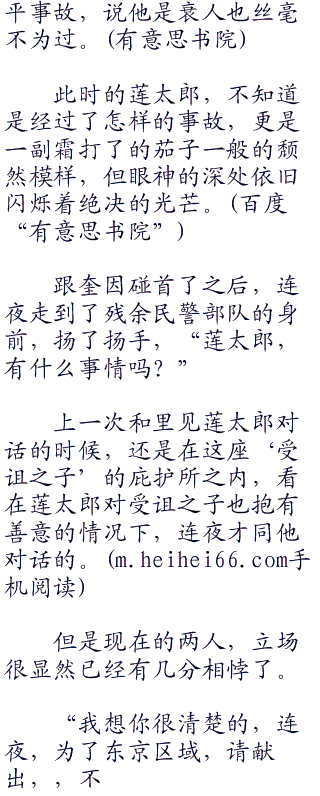 平事故，说他是衰人也丝毫
不为过。(有意思书院)
此时的莲太郎，不知道
是经过了怎样的事故，更是
一副霜打了的茄子一般的颓
然模样，但眼神的深处依旧
闪烁着绝决的光芒。(百度
“有意思书院”)
跟奎因碰首了之后，连
夜走到了残余民警部队的身
前，扬了扬手，“莲太郎，
有什么事情吗？”
上一次和里见莲太郎对
话的时候，还是在这座‘受
诅之子’的庇护所之内，看
在莲太郎对受诅之子也抱有
善意的情况下，连夜才同他
对话的。(m.heihei66.com手
机阅读)
但是现在的两人，立场
很显然已经有几分相悖了。
“我想你很清楚的，连
夜，为了东京区域，请献
出，，不